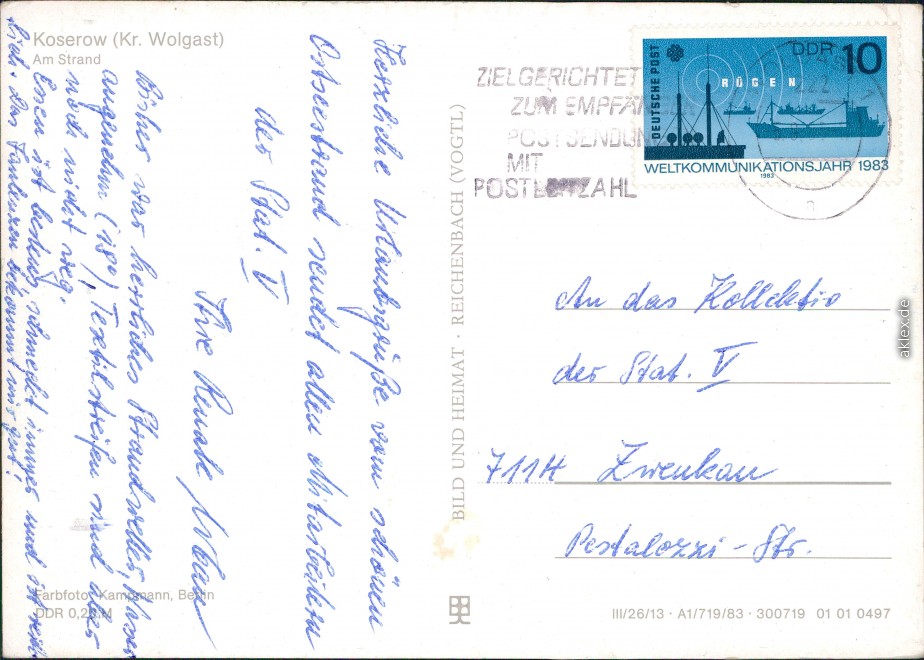 Koserow (Kr. Wolgast)
Am Strand
Herzliche Urlaubsgrüße vom schönen
Ostseestrand sendet allen Mitarbeitern
der Stat. V
Ihre Renate
Bisher war herrliches Strandwetter, Wasser
angenehm (18°), Textilstreifen sind aber
noch nicht weg.
Essen ist bestens, schmeckt immer und ist reich
lich. Das Faulenzen bekommt mir gut!
Farbfoto: Kampmann, Berlin
DDR 0,20 M
BILD UND HEIMAT · REICHENBACH (VOGTL)
ZIELGERICHTET
ZUM EMPFÄN
POSTSENDUN
MIT
POSTLEITZAHL
DEUTSCHE POST
DDR 10
RÜGEN
WELTKOMMUNIKATIONSJAHR 1983
1983
An das Kollektiv
der Stat. V
7114 Zwenkau
Pestalozzi-Str.
III/26/13 · A1/719/83 · 300719 01 01 0497
aklex.de